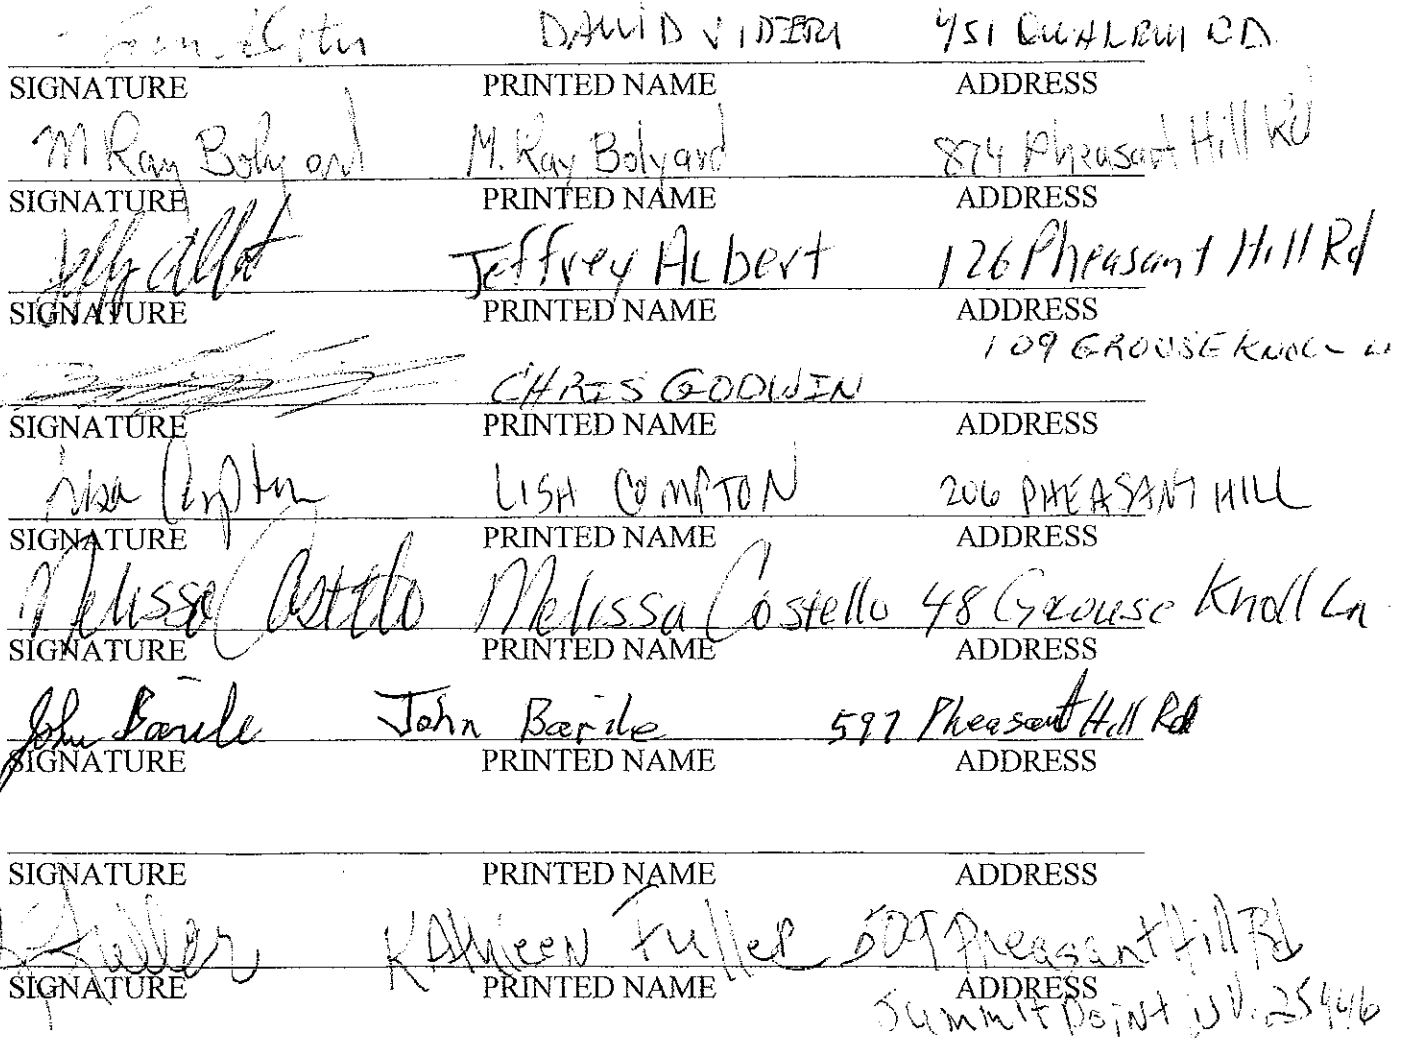 DAVID 451 RD
SIGNATURE PRINTED NAME ADDRESS
M Ray Bolyard M. Ray Bolyard 874 Pheasant Hill Rd
SIGNATURE PRINTED NAME ADDRESS
Jeff Albert Jeffrey Albert 126 Pheasant Hill Rd
SIGNATURE PRINTED NAME ADDRESS
109 GROUSE KNOLL
CHRIS GODWIN
SIGNATURE PRINTED NAME ADDRESS
Lisa Compton LISA COMPTON 206 PHEASANT HILL
SIGNATURE PRINTED NAME ADDRESS
Melissa Costello Melissa Costello 48 Grouse Knoll Ln
SIGNATURE PRINTED NAME ADDRESS
John Barile John Barile 597 Pheasant Hill Rd
SIGNATURE PRINTED NAME ADDRESS
SIGNATURE PRINTED NAME ADDRESS
K Fuller Kathleen Fuller 509 Pheasant Hill Rd
SIGNATURE PRINTED NAME ADDRESS
Summit Point WV. 25446